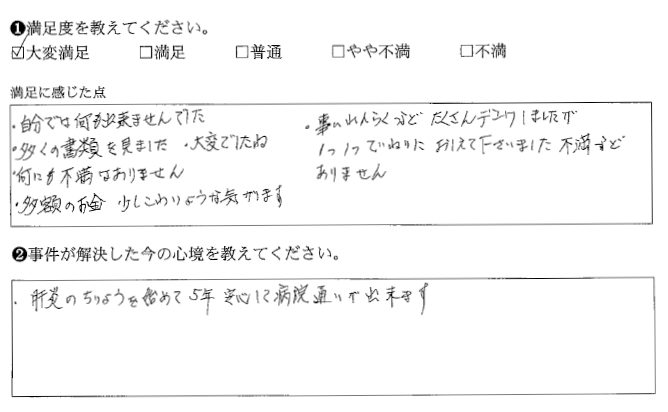 ❶満足度を教えてください。
☑大変満足 □満足 □普通 □やや不満 □不満
満足に感じた点
・自分では何も出来ませんでした
・多くの書類を見ました ・大変でしたね
・何にも不満はありません
・多額のお金 少しこわいような気がします
・事いれんらくなど たくさんデンワしましたが
1つ1つていねいに おしえて下さいました 不満など
ありません
❷事件が解決した今の心境を教えてください。
・肝炎のちりょうを始めて5年 安心して病院通いが出来ます